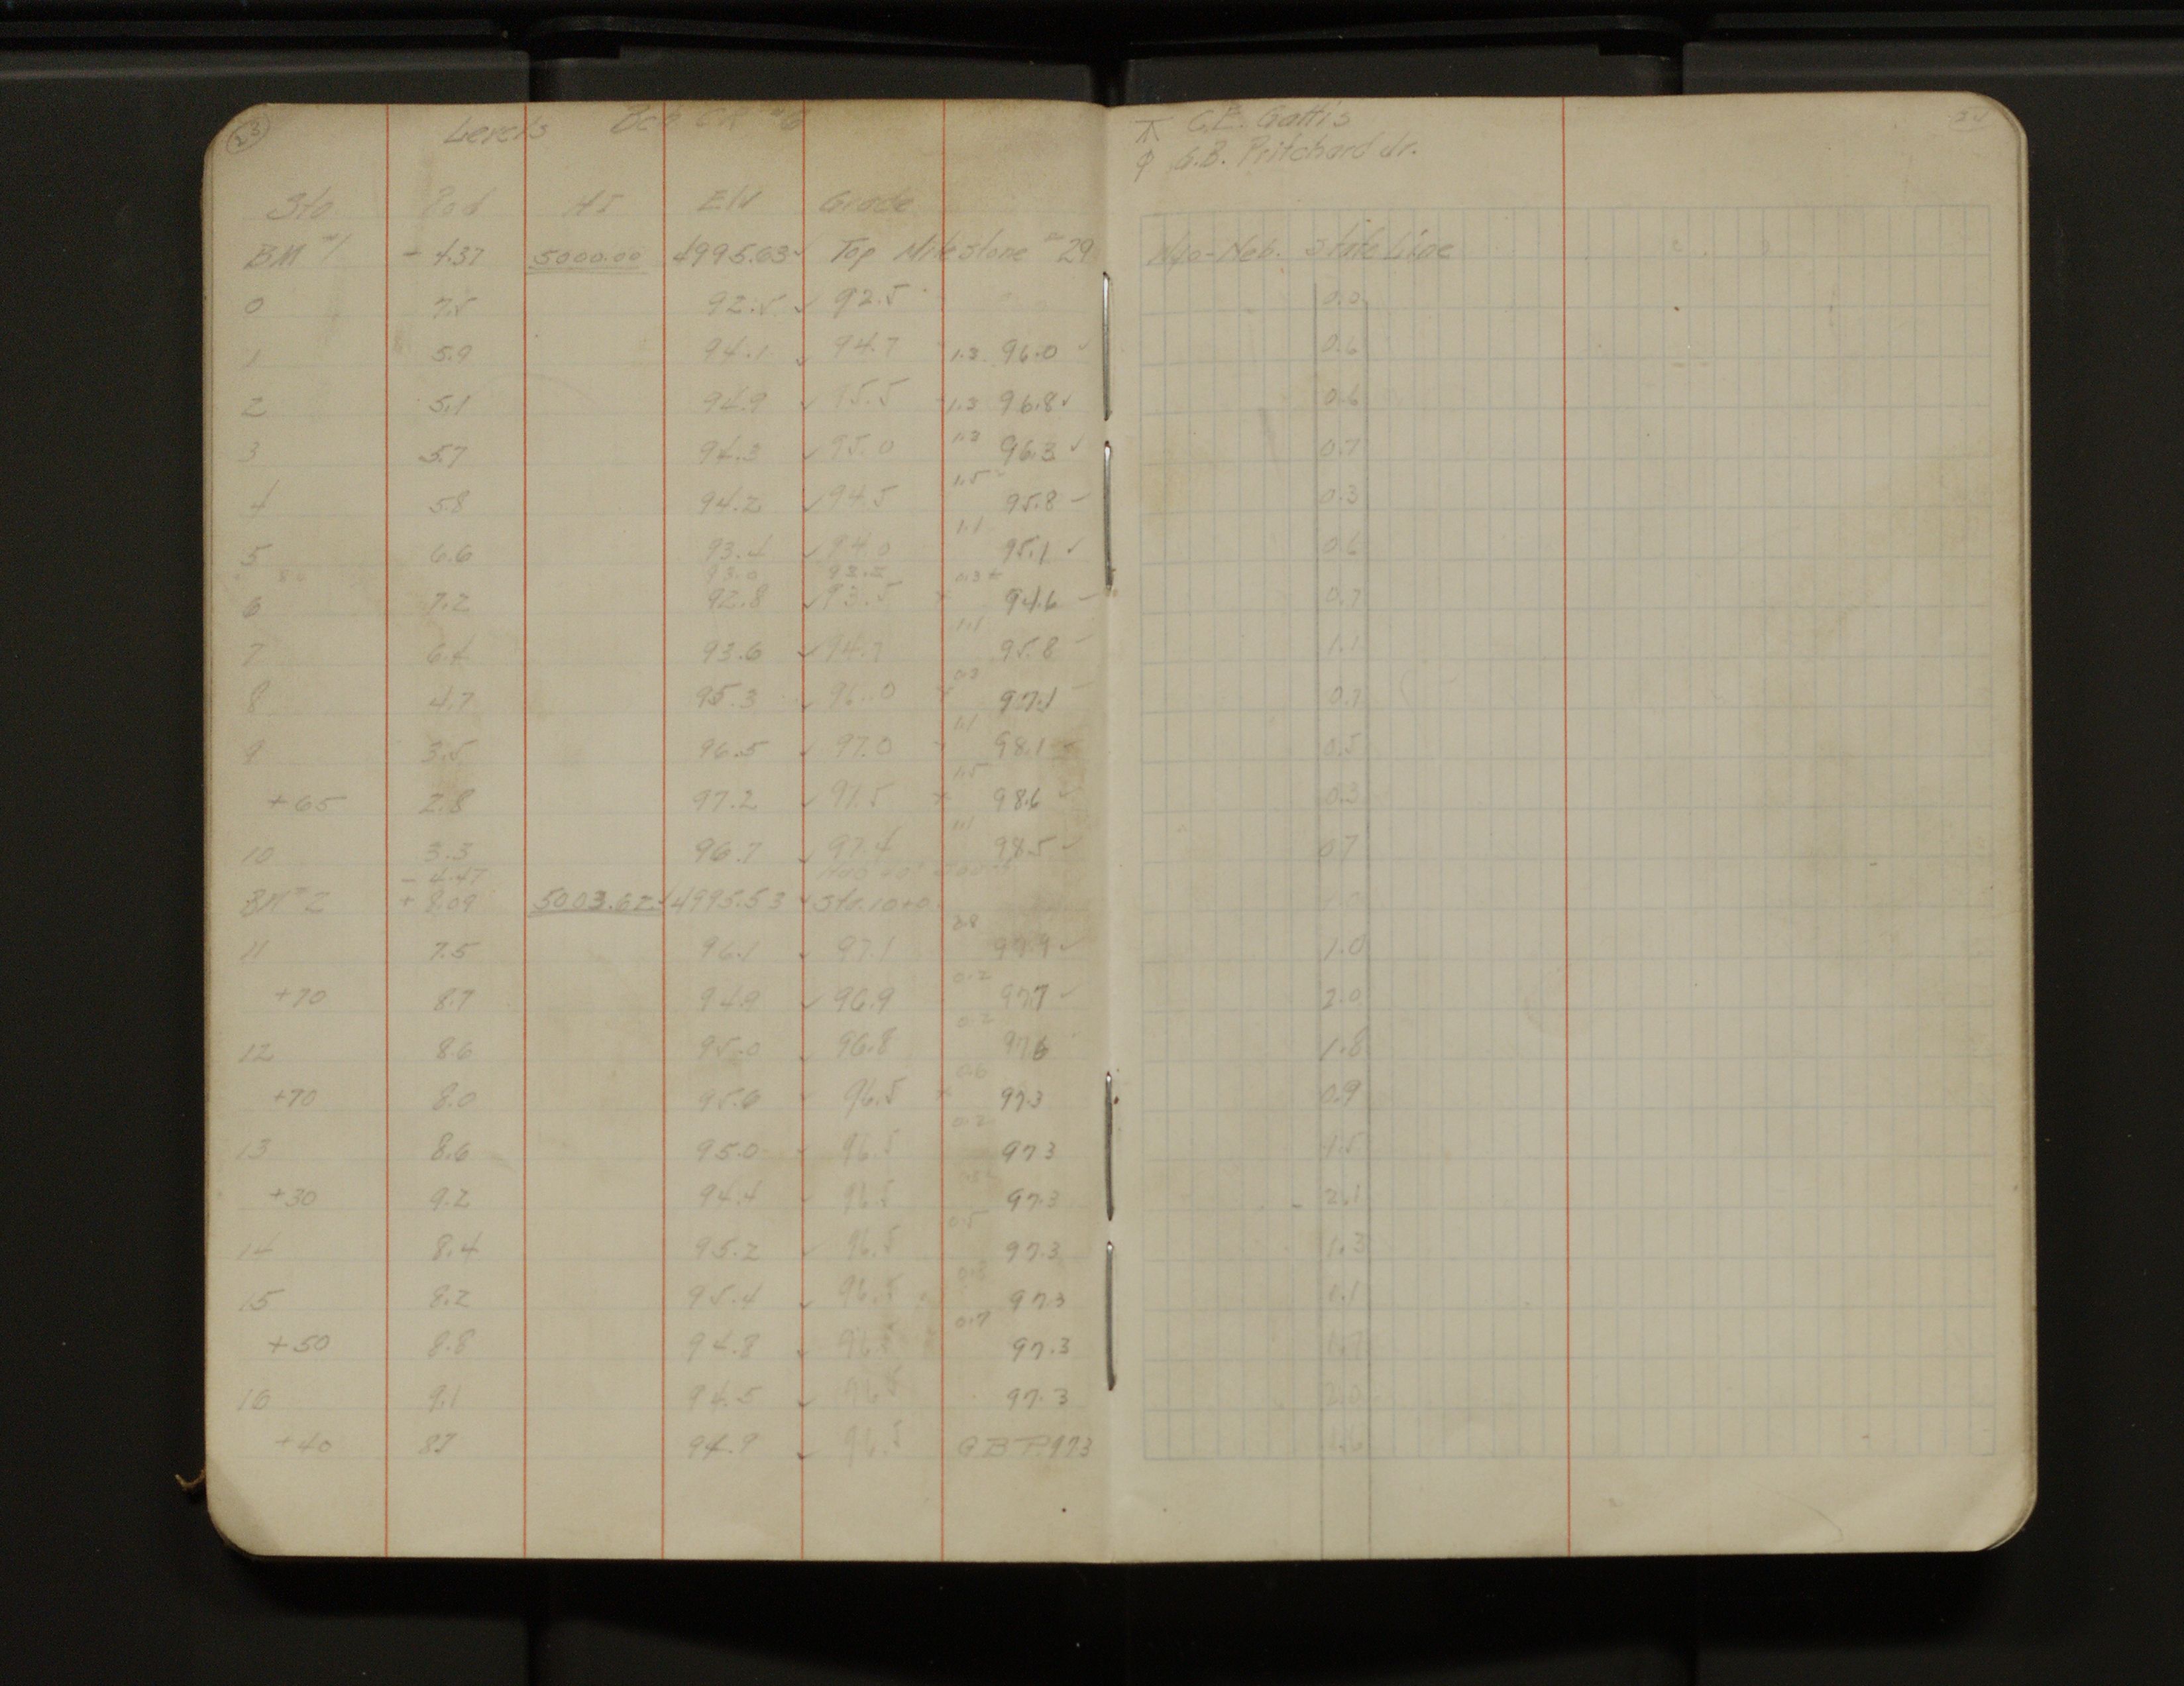 23 Levels
Sta Rod HI Elv Grade
BM #1 - 4.37 5000.00 4995.63 ✓ Top Milestone #29
0 7.5 92.5 ✓ 92.5
1 5.9 94.1 ✓ 94.7 1.3 96.0 ✓
2 5.1 94.9 ✓ 95.5 1.3 96.8 ✓
3 5.7 94.3 ✓ 95.0 1.3 96.3 ✓
4 5.8 94.2 ✓ 94.5 1.5 95.8
5 6.6 93.4 ✓ 94.0 1.1 95.1 ✓
93.0
6 7.2 92.8 ✓ 93.5 94.6
7 6.4 93.6 ✓ 94.7 1.1 95.8
8 4.7 95.3 ✓ 96.0 97.1
9 3.5 96.5 ✓ 97.0 1.1 98.1
+65 2.8 97.2 ✓ 97.5 1.5 98.6
10 3.3 96.7 ✓ 97.4 1.1 98.5 ✓
- 4.47
BM #2 + 8.09 5003.62 4995.53 ✓ Sta. 10+0
11 7.5 96.1 ✓ 97.1 ✓
+70 8.7 94.9 ✓ 96.9 0.2 97.7 ✓
12 8.6 95.0 ✓ 96.8 0.2 97.6
+70 8.0 95.6 96.5 0.6 97.3
13 8.6 95.0 96.5 0.2 97.3
+30 9.2 94.4 96.5 97.3
14 8.4 95.2 96.5 0.5 97.3
15 8.2 95.4 ✓ 96.5 97.3
+50 8.8 94.8 ✓ 0.7 97.3
16 9.1 94.5 ✓ 97.3
+40 8.7 94.9 ✓ 96.5 G B P. 97.3
⊼ C.E. Gattis 24
ϕ G.B. Pritchard Jr.
Wyo-Neb. State Line
0.0
0.6
0.6
0.7
0.3
0.6
0.7
1.1
0.7
0.5
0.3
0.7
1.0
2.0
1.8
0.9
1.5
2.1
1.3
1.1
1.7
2.0
1.6